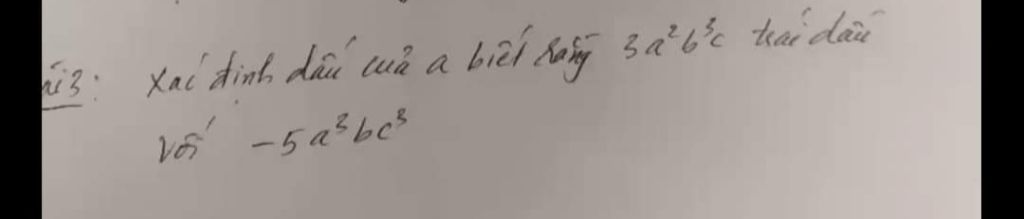 ài 3: Xác định dấu của a biết rằng 3a²b³c trái dấu
với -5a³bc³